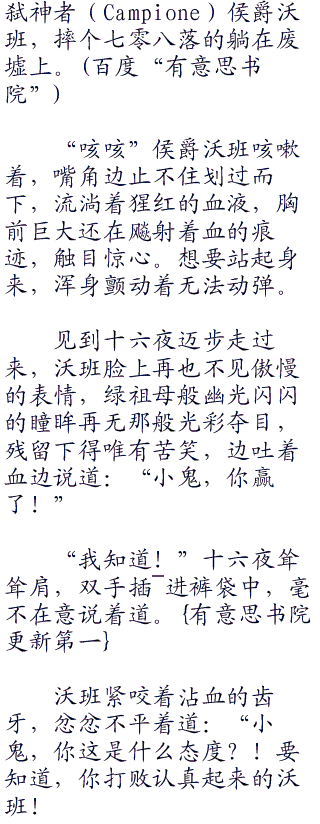 弑神者（Campione）侯爵沃
班，摔个七零八落的躺在废
墟上。(百度“有意思书
院”)
“咳咳”侯爵沃班咳嗽
着，嘴角边止不住划过而
下，流淌着猩红的血液，胸
前巨大还在飚射着血的痕
迹，触目惊心。想要站起身
来，浑身颤动着无法动弹。
见到十六夜迈步走过
来，沃班脸上再也不见傲慢
的表情，绿祖母般幽光闪闪
的瞳眸再无那般光彩夺目，
残留下得唯有苦笑，边吐着
血边说道：“小鬼，你赢
了！”
“我知道！”十六夜耸
耸肩，双手插进裤袋中，毫
不在意说着道。{有意思书院
更新第一}
沃班紧咬着沾血的齿
牙，忿忿不平着道：“小
鬼，你这是什么态度？！要
知道，你打败认真起来的沃
班！